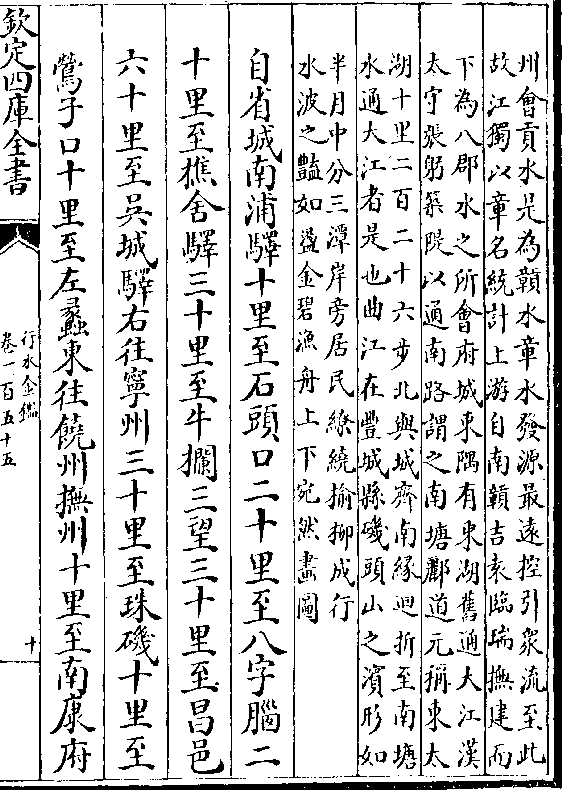 州會貢水是為贑水章水發源最遠控引衆流至此
故江獨以章名統計上游自南贑吉袁臨瑞撫建而
下為八郡水之所會府城東隅有東湖舊通大江漢
太守張躬築隄以通南路謂之南塘酈道元稱東太
湖十里二百二十六步北與城齊南緣迴折至南塘
水通大江者是也曲江在豐城縣磯頭山之濱形如
半月中分三潭岸旁居民繚繞榆柳成行
水波之豔如盪金碧漁舟上下宛然畵圖
自省城南浦驛十里至石頭口二十里至八字腦二
十里至樵舍驛三十里至牛攔三望三十里至昌邑
六十里至吳城驛右往寧州三十里至珠磯十里至
鶯子口十里至左蠡東往饒州撫州十里至南康府
欽定四庫全書
行水金鑑
卷一百五十五
十